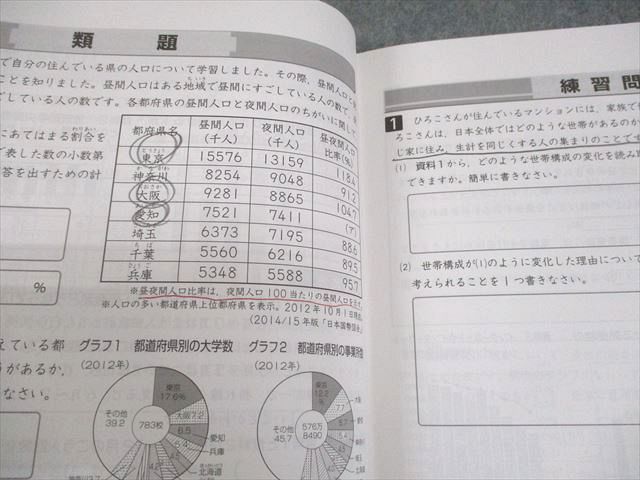 類題
で自分の住んでいる県の人口について学習しました。その際、昼間人口と
ことを知りました。昼間人口はある地域で昼間にすごしている人の数で、
ごしている人の数です。各都府県の昼間人口と夜間人口のちがいに関して
にあてはまる割合を
で表した数の小数第
答を出すための計
%
都府県名 昼間人口(千人) 夜間人口(千人) 昼夜間人口比率(%)
東京 15576 13159 118.4
神奈川 8254 9048 91.2
大阪 9281 8865 104.7
愛知 7521 7411 (ア)
埼玉 6373 7195 88.6
千葉 5560 6216 89.5
兵庫 5348 5588 95.7
※昼夜間人口比率は、夜間人口100当たりの昼間人口を
※人口の多い都府県上位都府県を表示。2012年10月1日現在。
(2014/15年版「日本国勢図会」)
えている都
うがあるか、
なさい。
グラフ1 都道府県別の大学数
(2012年)
東京
17.6%
大阪7.2
6.5
愛知
5.4
兵庫
北海道
その他
39.2
783校
グラフ2 都道府県別の事業所
(2012年)
東京
12.2
%
7.7
5.7
5.4
その他
45.7
576万
8490
練習問
1 ひろこさんが住んでいるマンションには、家族で
ろこさんは、日本全体ではどのような世帯があるのか
じ家に住み、生計を同じくする人の集まりのことで
(1) 資料1から、どのような世帯構成の変化を読み
できますか。簡単に書きなさい。
(2) 世帯構成が(1)のように変化した理由について
考えられることを1つ書きなさい。